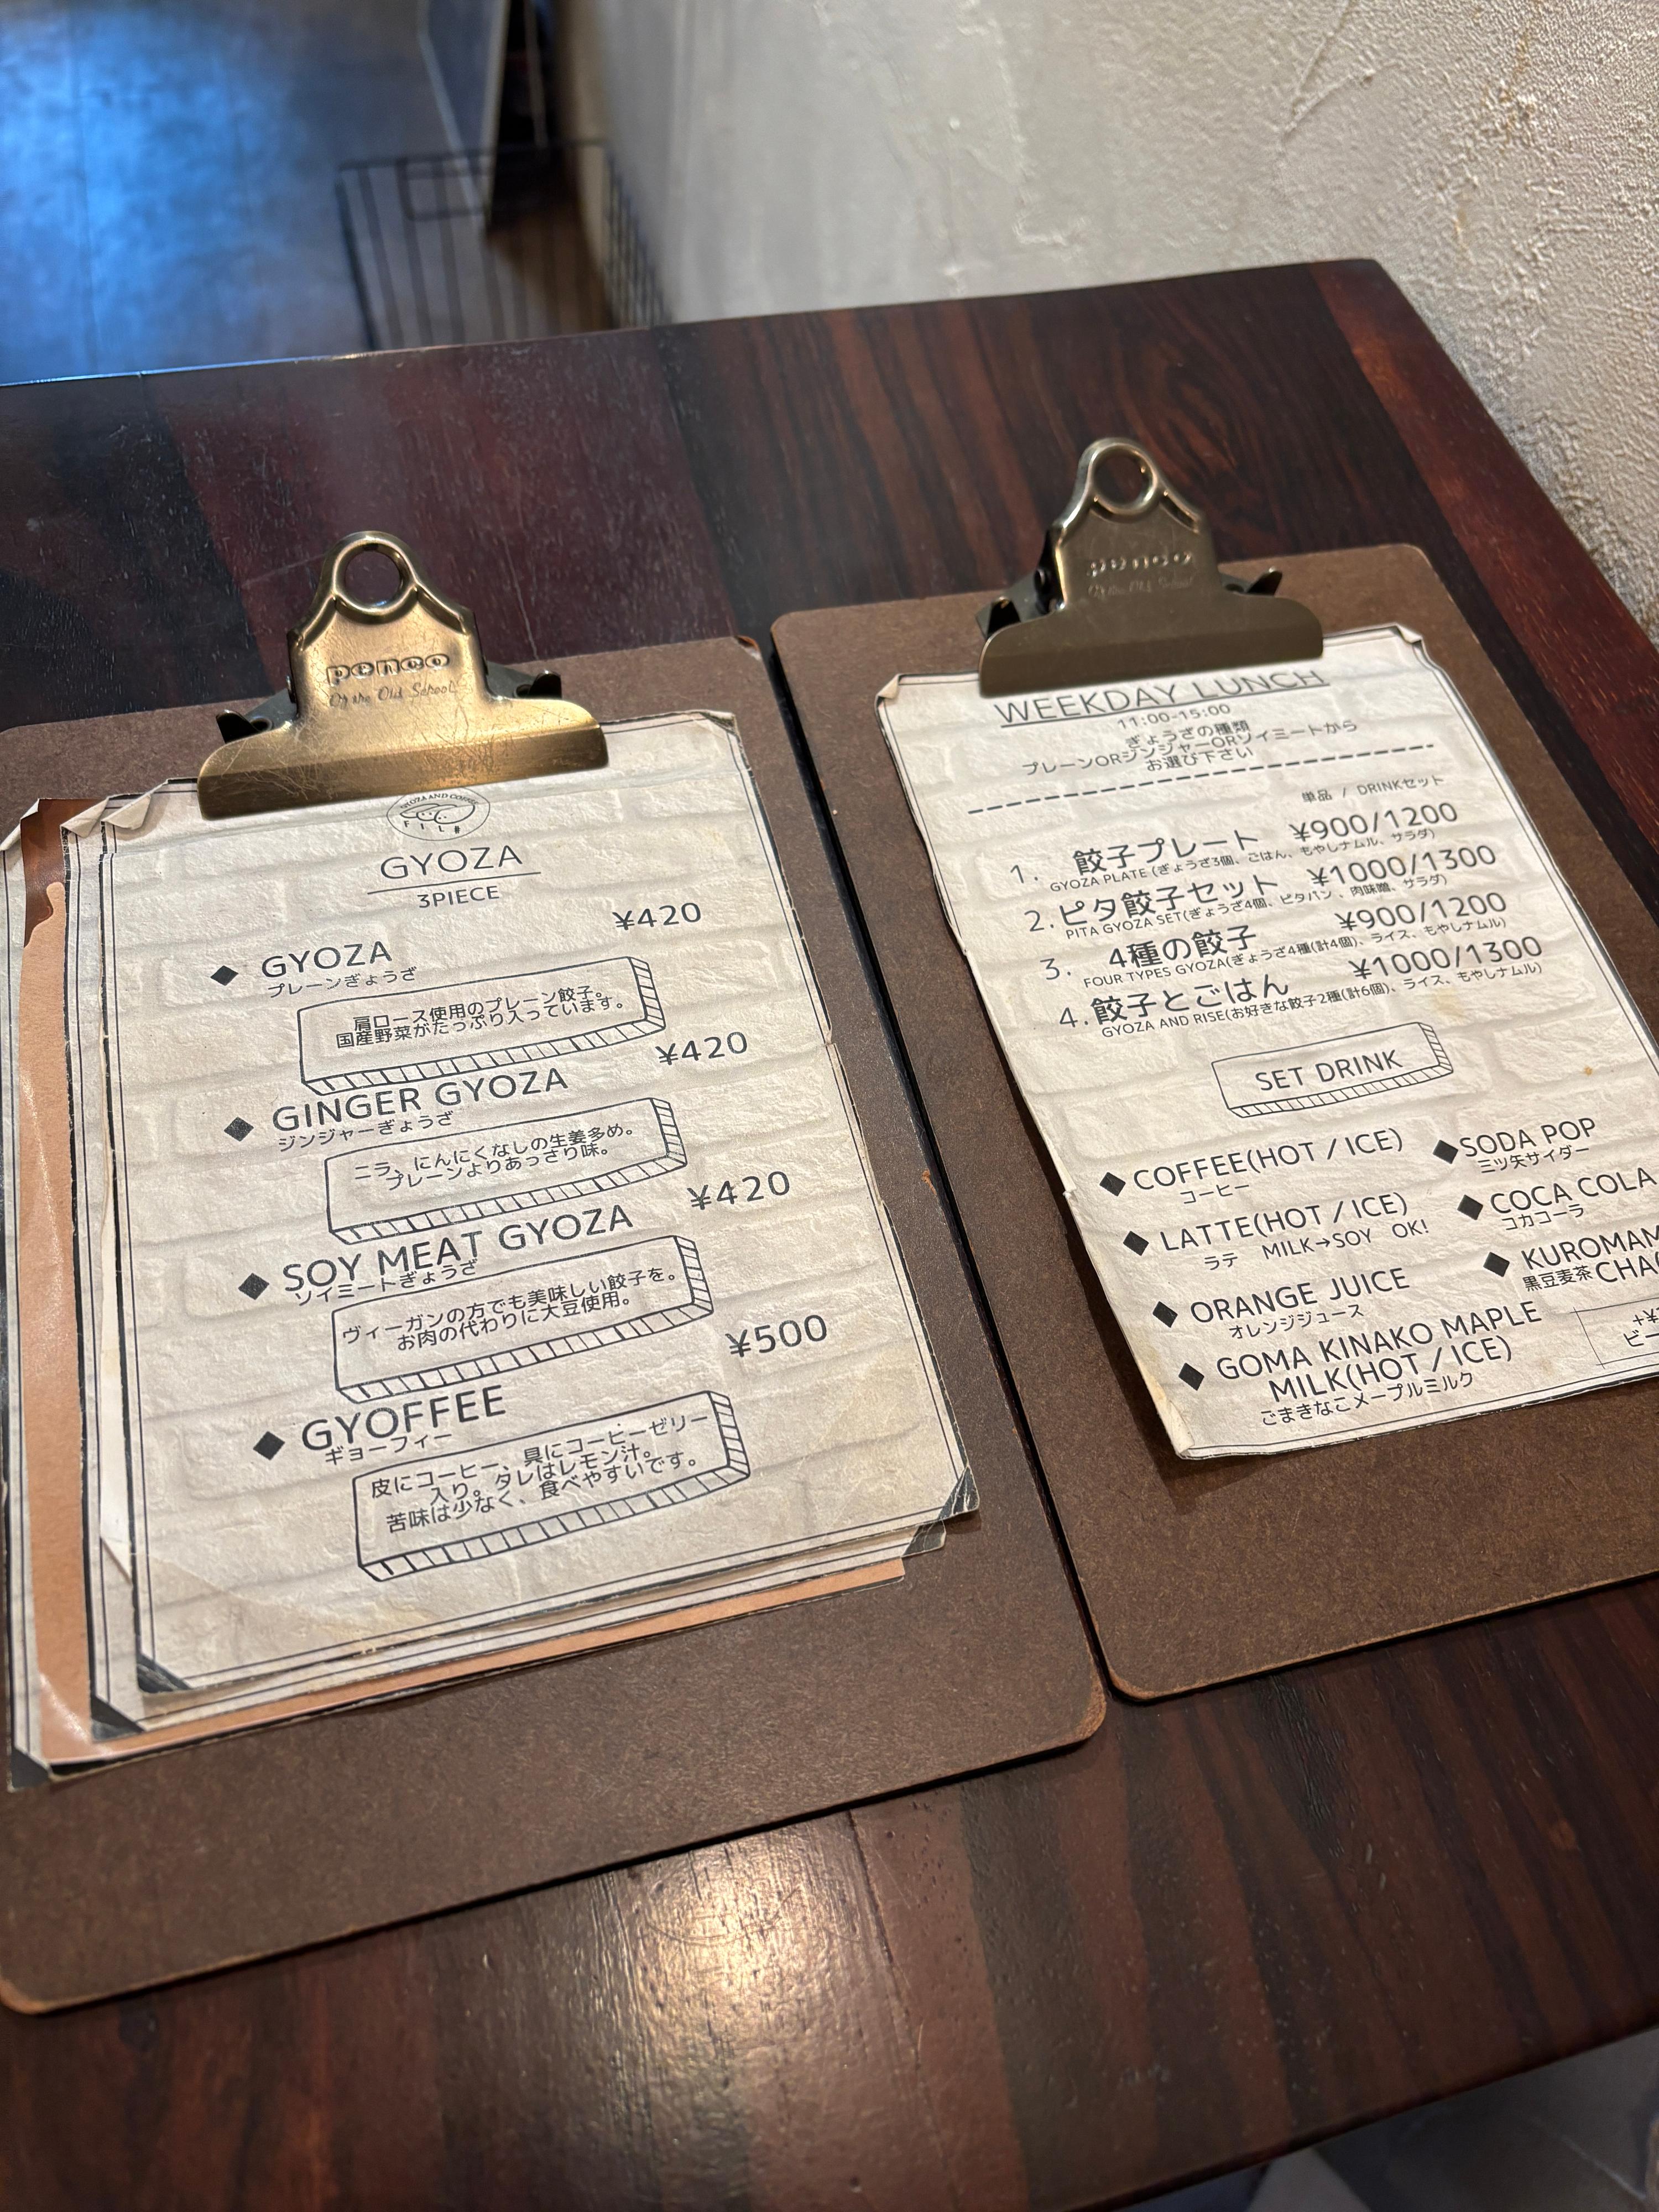 penco
GYOZA AND COFFEE
GYOZA
3PIECE
¥420
◆ GYOZA
プレーンぎょうざ
肩ロース使用のプレーン餃子。
国産野菜がたっぷり入っています。
¥420
◆ GINGER GYOZA
ジンジャーぎょうざ
ニラ、にんにくなしの生姜多め。
プレーンよりあっさり味。
¥420
◆ SOY MEAT GYOZA
ソイミートぎょうざ
ヴィーガンの方でも美味しい餃子を。
お肉の代わりに大豆使用。
¥500
◆ GYOFFEE
ギョーフィー
皮にコーヒー、具にコーヒーゼリー
入り。タレはレモン汁。
苦味は少なく、食べやすいです。
penco
WEEKDAY LUNCH
11:00-15:00
ぎょうざの種類
プレーンORジンジャーORソイミートから
お選び下さい
単品 / DRINKセット
1. 餃子プレート ¥900/1200
GYOZA PLATE (ぎょうざ3個、ごはん、もやしナムル、サラダ)
2. ピタ餃子セット ¥1000/1300
PITA GYOZA SET(ぎょうざ4個、ピタパン、肉味噌、サラダ)
3. 4種の餃子 ¥900/1200
FOUR TYPES GYOZA(ぎょうざ4種(計4個)、ライス、もやしナムル)
4. 餃子とごはん ¥1000/1300
GYOZA AND RISE(お好きな餃子2種(計6個)、ライス、もやしナムル)
SET DRINK
◆ COFFEE(HOT / ICE)
コーヒー
◆ LATTE(HOT / ICE)
ラテ MILK→SOY OK!
◆ ORANGE JUICE
オレンジジュース
◆ GOMA KINAKO MAPLE
MILK(HOT / ICE)
ごまきなこメープルミルク
◆ SODA POP
三ツ矢サイダー
◆ COCA COLA
コカコーラ
◆ KUROMAM
黒豆麦茶 CHA
+¥
ビー